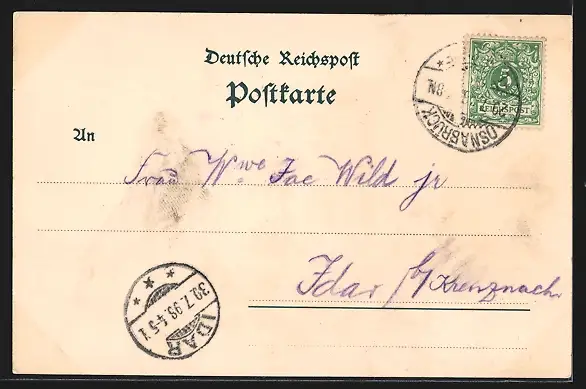 Deutsche Reichspost
Postkarte
5
REICHSPOST
OSNABRÜCK
An
Frau Wwe Jac Wild jr
Idar b/ Kreuznach
30.7.99.4-5N
IDAR